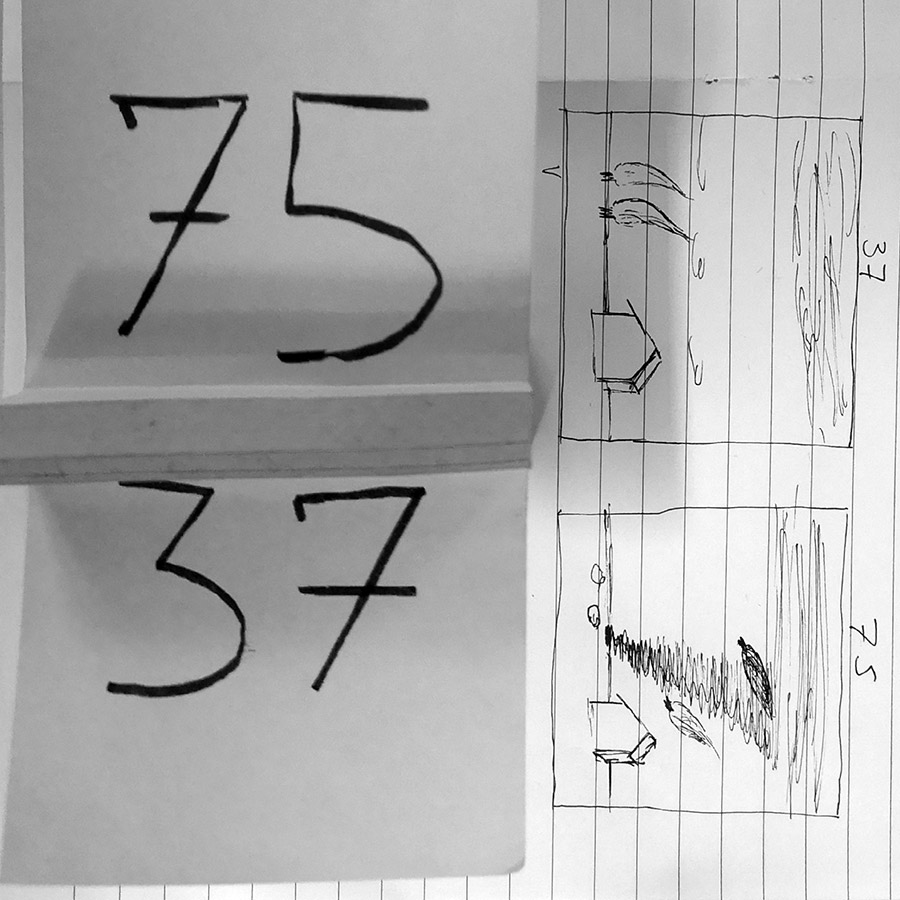 75
37
37
75